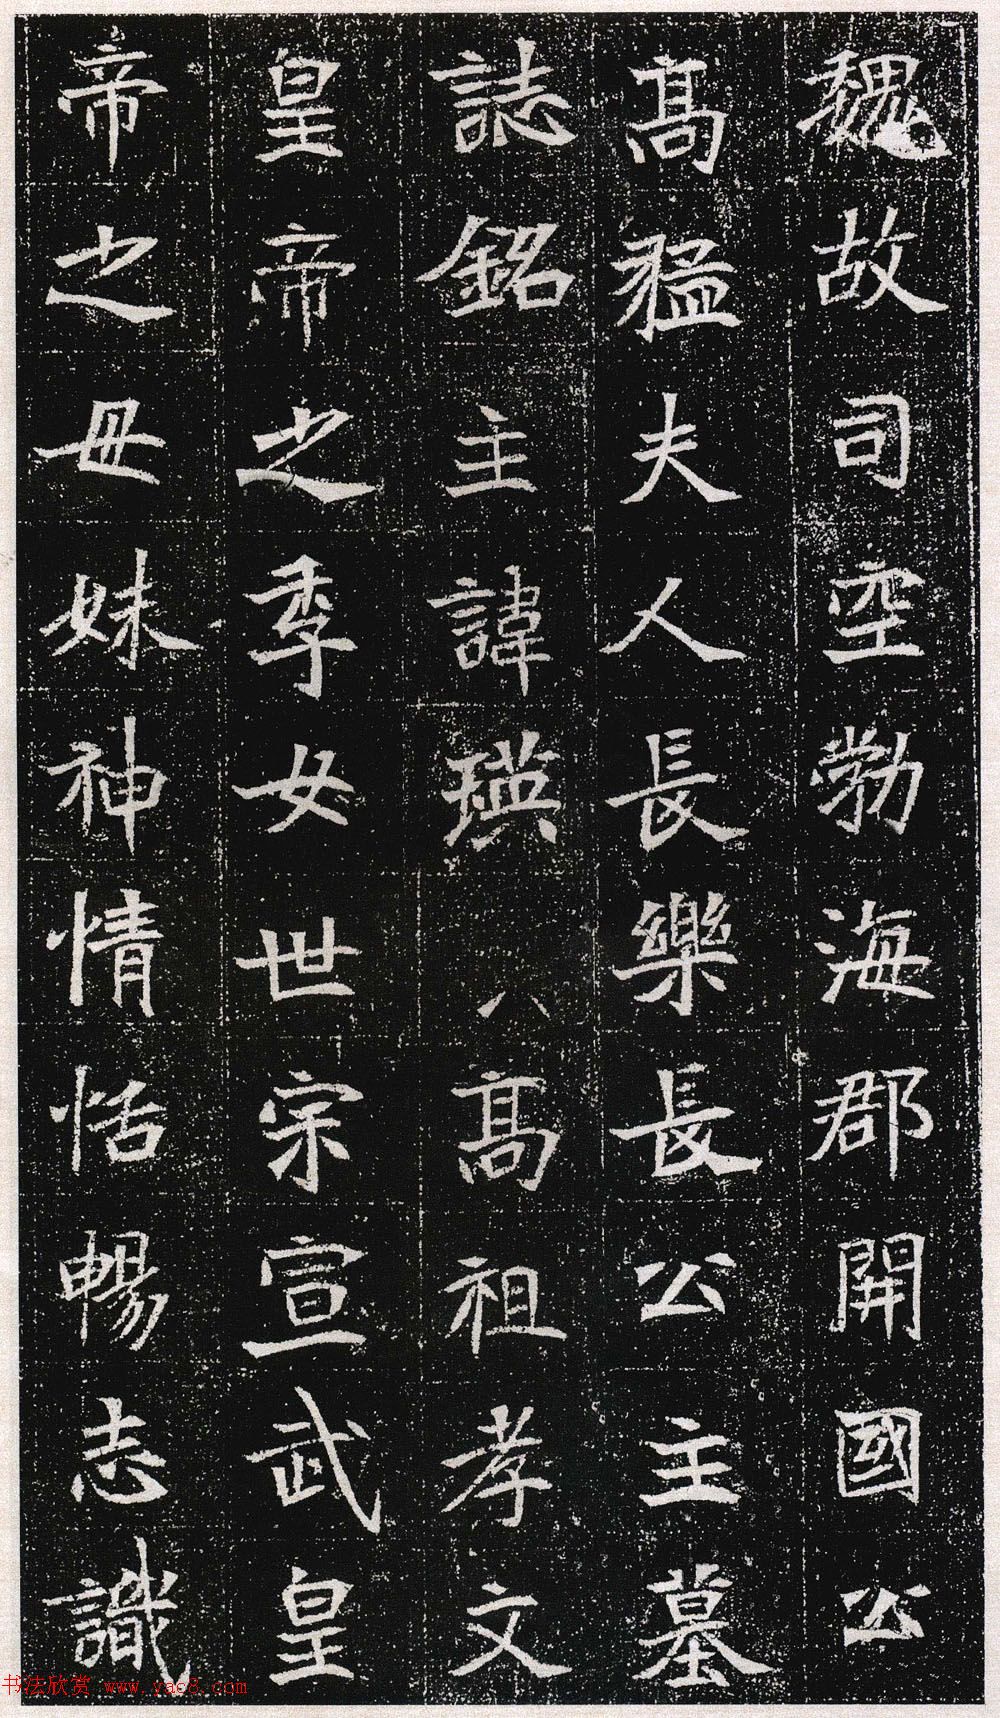 魏故司空勃海郡開國公
髙猛夫人長樂長公主墓
誌銘主諱瑛八髙祖孝文
皇帝之季女世宗宣武皇
帝之母妹神情恬暢志識
书法欣赏 www.yac8.com